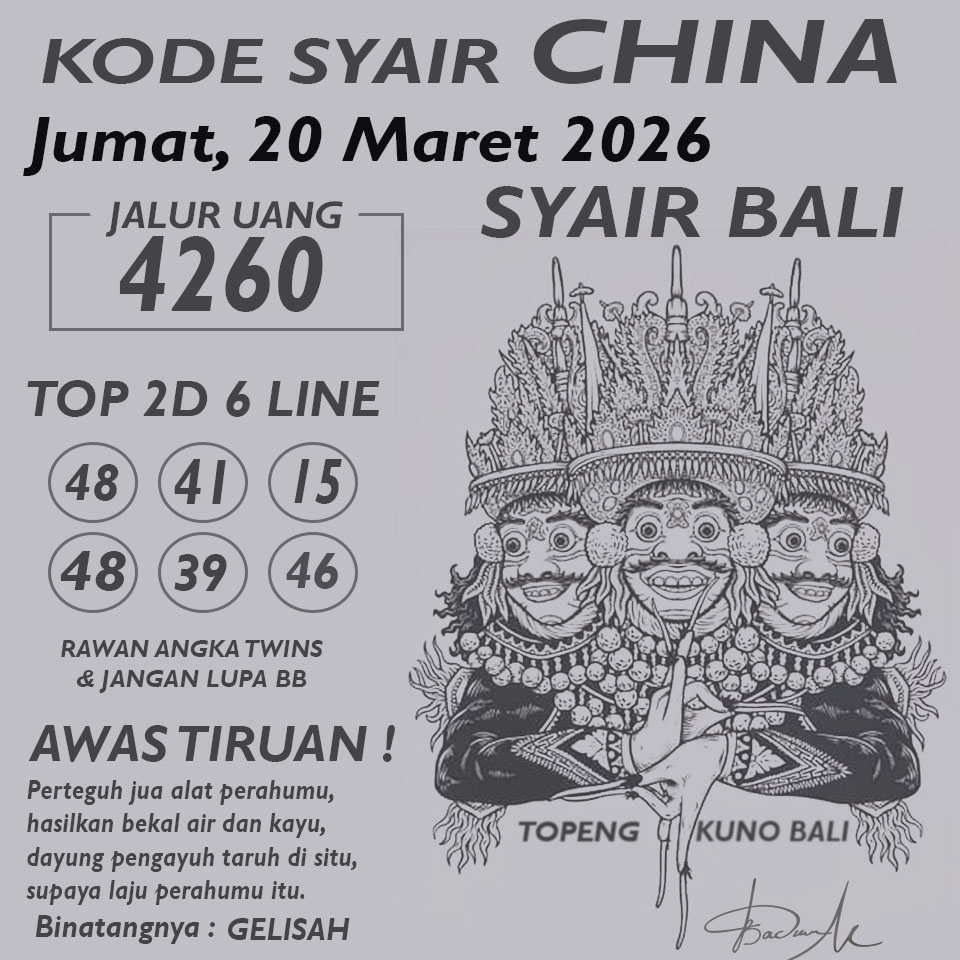 KODE SYAIR CHINA
Jumat, 20 Maret 2026
SYAIR BALI
JALUR UANG
4260
TOP 2D 6 LINE
48 41 15
48 39 46
RAWAN ANGKA TWINS
& JANGAN LUPA BB
AWAS TIRUAN !
Perteguh jua alat perahumu,
hasilkan bekal air dan kayu,
dayung pengayuh taruh di situ,
supaya laju perahumu itu.
Binatangnya : GELISAH
TOPENG KUNO BALI